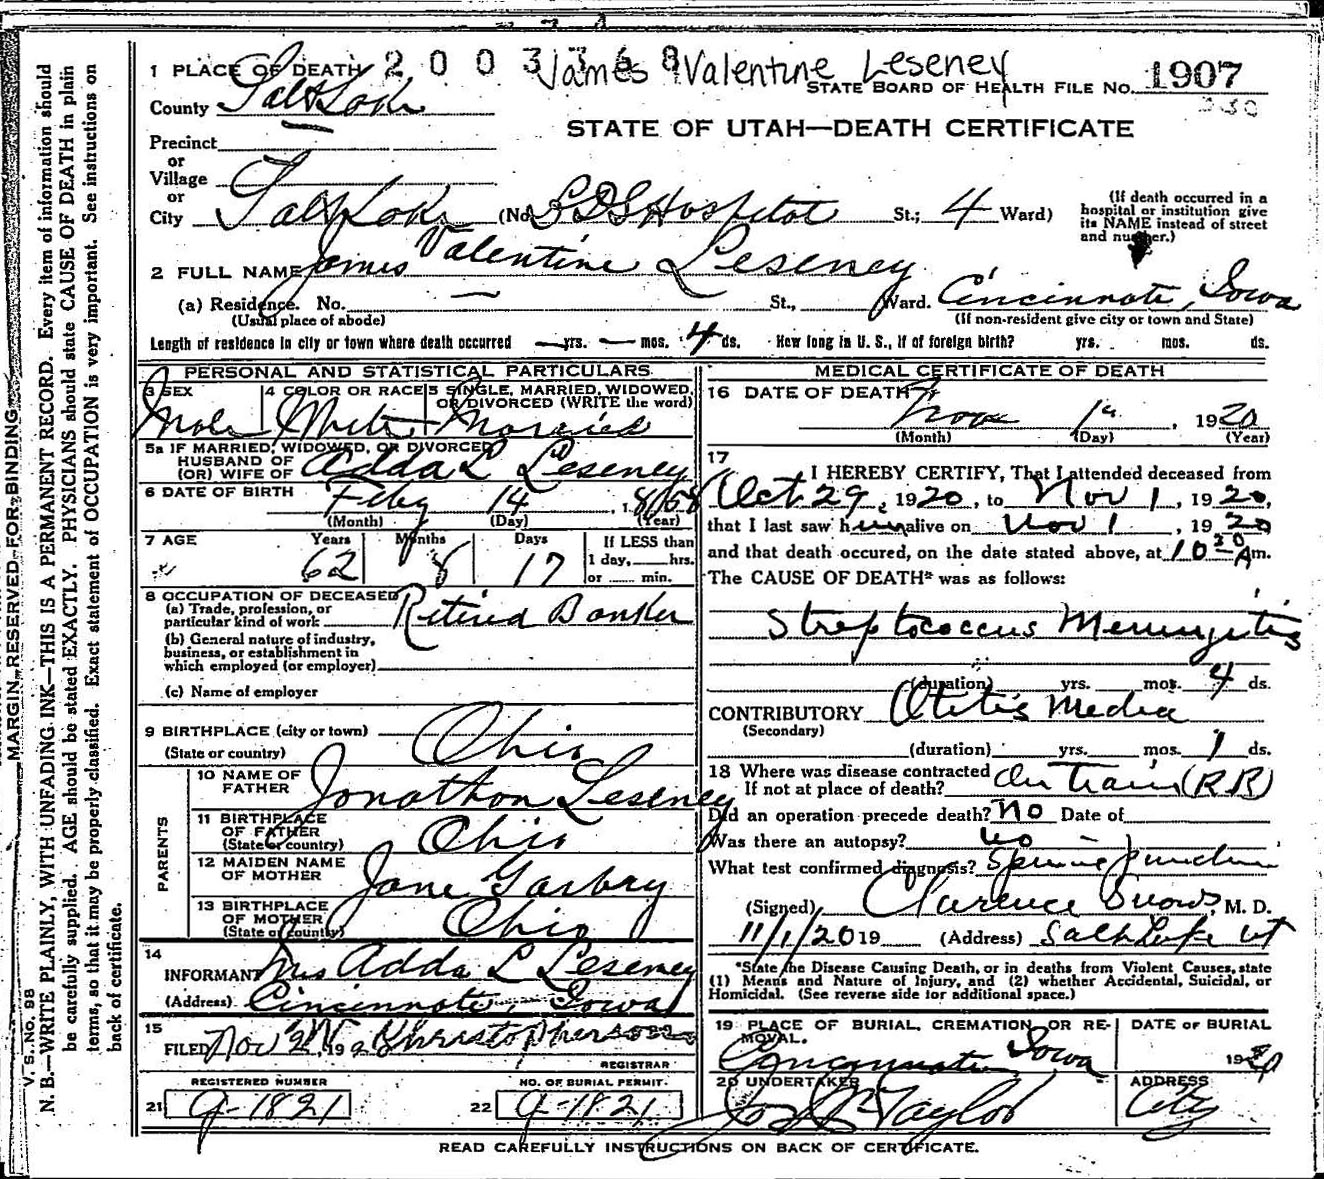 2003368 James Valentine Leseney
1 PLACE OF DEATH
STATE BOARD OF HEALTH FILE No. 1907
County Salt Lake
230
STATE OF UTAH—DEATH CERTIFICATE
Precinct
or
Village
or
City Salt Lake (No. LDS Hospital St.; 4 Ward)
(If death occurred in a
hospital or institution give
its NAME instead of street
and number.)
2 FULL NAME James Valentine Leseney
(a) Residence. No. St., Ward. Cincinnate, Iowa
(Usual place of abode) (If non-resident give city or town and State)
Length of residence in city or town where death occurred — yrs. — mos. 4 ds. How long in U. S., if of foreign birth? yrs. mos. ds.
PERSONAL AND STATISTICAL PARTICULARS
3 SEX Male
4 COLOR OR RACE White
5 SINGLE, MARRIED, WIDOWED,
OR DIVORCED (WRITE the word)
Married
5a IF MARRIED, WIDOWED, OR DIVORCED
HUSBAND OF
(OR) WIFE OF Adda L Leseney
6 DATE OF BIRTH Feby 14, 1858
(Month) (Day) (Year)
7 AGE Years Months Days If LESS than
62 8 17 1 day, hrs.
or min.
8 OCCUPATION OF DECEASED
(a) Trade, profession, or
particular kind of work Retired Banker
(b) General nature of industry,
business, or establishment in
which employed (or employer)
(c) Name of employer
9 BIRTHPLACE (city or town)
(State or country) Ohio
PARENTS
10 NAME OF
FATHER Jonathon Leseney
11 BIRTHPLACE
OF FATHER
(State or country) Ohio
12 MAIDEN NAME
OF MOTHER Jane Garbry
13 BIRTHPLACE
OF MOTHER
(State or country) Ohio
14
INFORMANT Mrs Adda L Leseney
(Address) Cincinnate, Iowa
15
FILED Nov 2, 1920
REGISTRAR
REGISTERED NUMBER
21 9-1821
NO. OF BURIAL PERMIT.
22 9-1821
MEDICAL CERTIFICATE OF DEATH
16 DATE OF DEATH
Nov 1st, 1920
(Month) (Day) (Year)
17
I HEREBY CERTIFY, That I attended deceased from
Oct 29, 1920, to Nov 1, 1920,
that I last saw him alive on Nov 1, 1920
and that death occured, on the date stated above, at 10 30 A m.
The CAUSE OF DEATH* was as follows:
Streptococcus Meningitis
(duration) yrs. mos. 4 ds.
CONTRIBUTORY Otitis Media
(Secondary)
(duration) yrs. mos. 7 ds.
18 Where was disease contracted
If not at place of death? On Train (RR)
Did an operation precede death? No Date of
Was there an autopsy? no
What test confirmed diagnosis? Spine puncture
(Signed) Clarence Snow, M. D.
11/1/20 19 (Address) Salt Lake Ut
*State the Disease Causing Death, or in deaths from Violent Causes, state
(1) Means and Nature of Injury, and (2) whether Accidental, Suicidal, or
Homicidal. (See reverse side for additional space.)
19 PLACE OF BURIAL, CREMATION, OR RE-
MOVAL.
Cincinnate Iowa
DATE OF BURIAL
1920
20 UNDERTAKER
Taylor
ADDRESS
City
READ CAREFULLY INSTRUCTIONS ON BACK OF CERTIFICATE.
V. S. NO. 98
MARGIN RESERVED FOR BINDING
N. B.—WRITE PLAINLY, WITH UNFADING INK—THIS IS A PERMANENT RECORD. Every item of information should
be carefully supplied. AGE should be stated EXACTLY. PHYSICIANS should state CAUSE OF DEATH in plain
terms, so that it may be properly classified. Exact statement of OCCUPATION is very important. See instructions on
back of certificate.